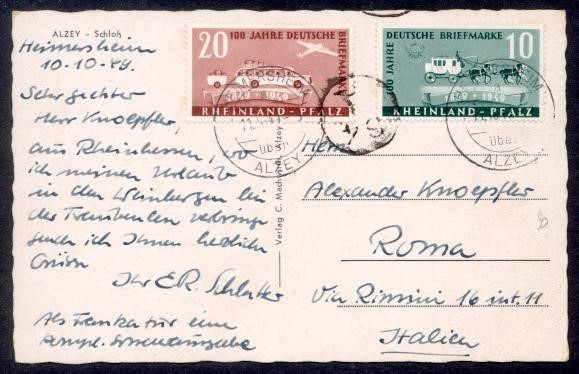 ALZEY - Schloß
Heimersheim
10.10.49.
Sehr geehrter
Herr Knoepfler,
aus Rheinhessen, wo
ich meinen Urlaub
in den Weinbergen bei
der Traubenlese verbringe
sende ich Ihnen herzliche
Grüsse
Ihr E.R. Schlatter
Als Frankatur eine
kompl. Sonderausgabe
Verlag C. Machwirth, Alzey
20
100 JAHRE DEUTSCHE BRIEFMARKE
1849 * 1949
RHEINLAND - PFALZ
100 JAHRE DEUTSCHE BRIEFMARKE
10
1849 - 1949
RHEINLAND - PFALZ
über
ALZEY
über
ALZEY
Herrn
Alexander Knoepfler
Roma
Via Rimini 16 int. 11
Italien